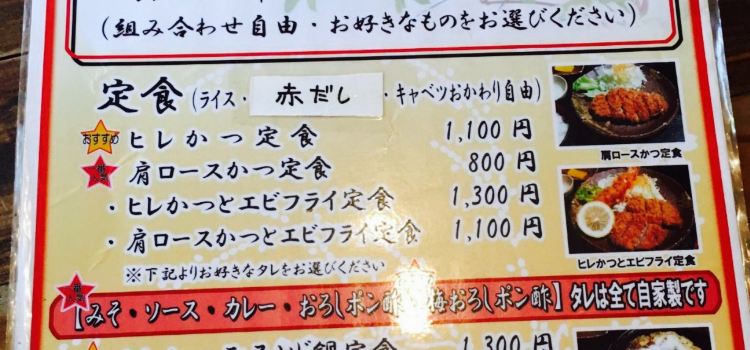 (組み合わせ自由・お好きなものをお選びください)
定食(ライス・赤だし・キャベツおかわり自由)
おすすめ ヒレかつ定食 1,100円
肩ロースかつ定食 800円
・ヒレかつとエビフライ定食 1,300円
・肩ロースかつとエビフライ定食 1,100円
※下記よりお好きなタレをお選びください
肩ロースかつ定食
ヒレかつとエビフライ定食
【みそ・ソース・カレー・おろしポン酢・梅おろしポン酢】タレは全て自家製です
鍋定食 1,300円